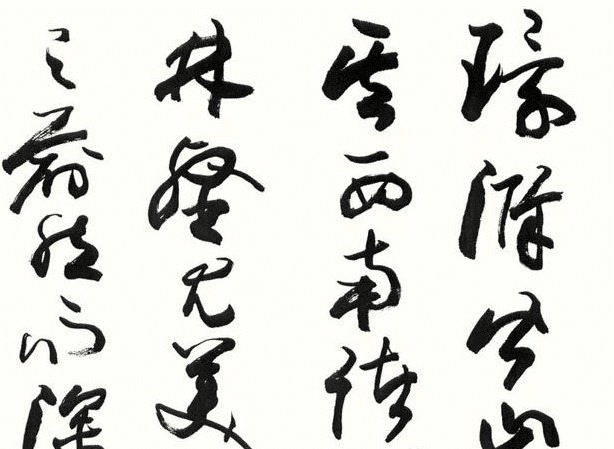 環滁皆山
其西南諸
林壑尤美
之蔚然而深